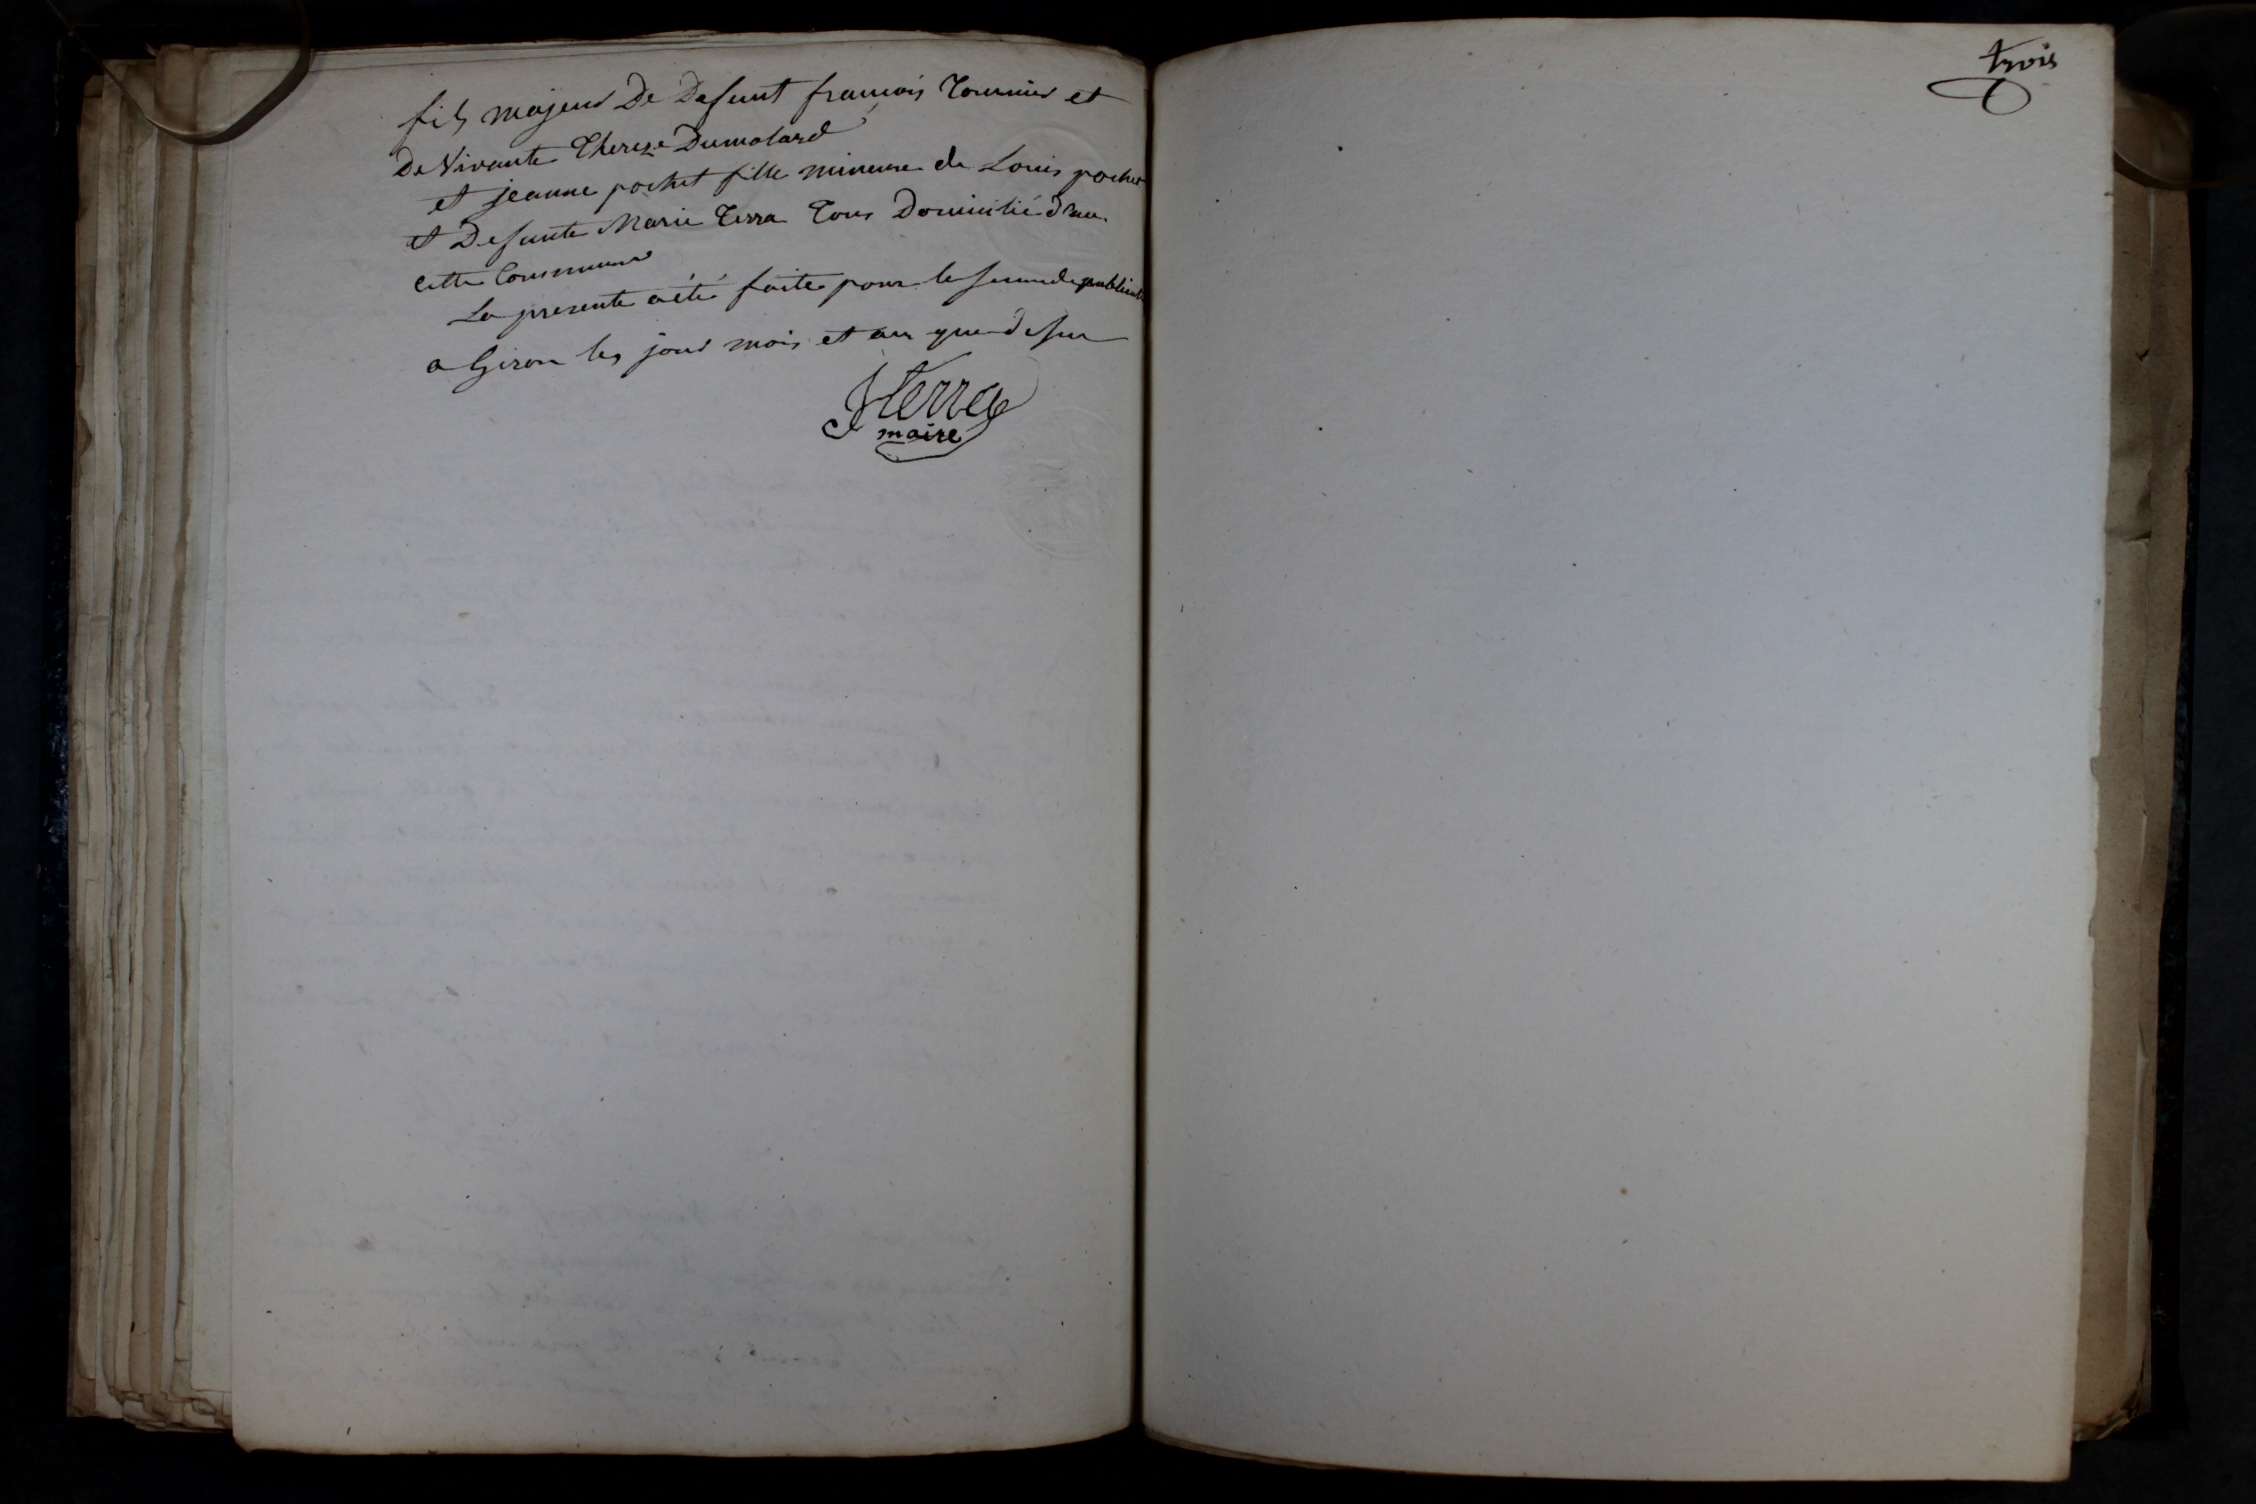 fils majeur De Defunt francois Tournier et
De Vivante Thereze Dumolard
et jeanne pochet fille mineure de Louis pochet
et Defunte Marie Terra Tous Domicilié dans
cette Commune
La presente a été faite pour la seconde publicat
a Giron les jour mois et an que desu
JTerra
maire
trois